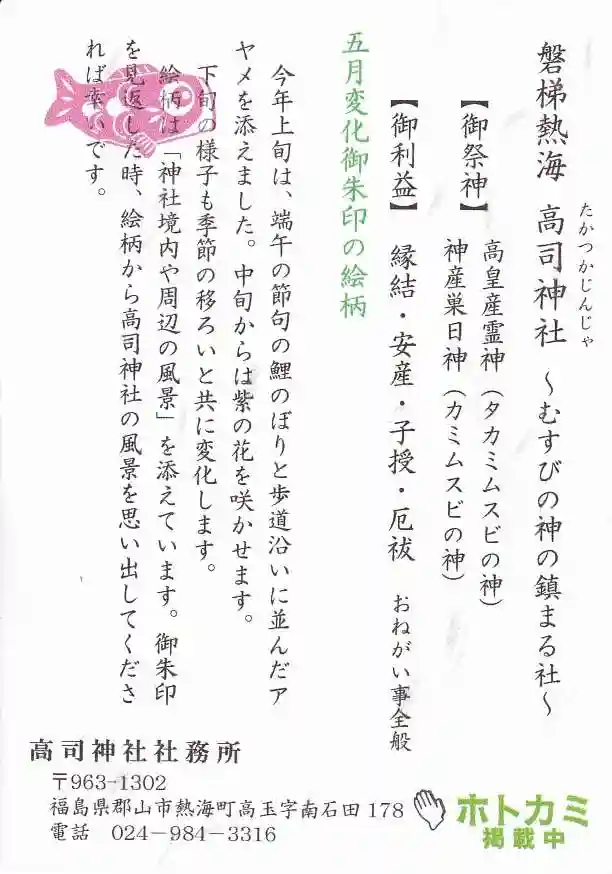 たかつかじんじゃ
磐梯熱海 高司神社 ～むすびの神の鎮まる社～
【御祭神】 高皇産霊神（タカミムスビの神）
神産巣日神（カミムスビの神）
【御利益】 縁結・安産・子授・厄祓 おねがい事全般
五月変化御朱印の絵柄
今年上旬は、端午の節句の鯉のぼりと歩道沿いに並んだア
ヤメを添えました。中旬からは紫の花を咲かせます。
下旬の様子も季節の移ろいと共に変化します。
絵柄は「神社境内や周辺の風景」を添えています。御朱印
を見返した時、絵柄から高司神社の風景を思い出してくださ
れば幸いです。
高司神社社務所
〒963-1302
福島県郡山市熱海町高玉字南石田178
電話 024-984-3316
ホトカミ
掲載中